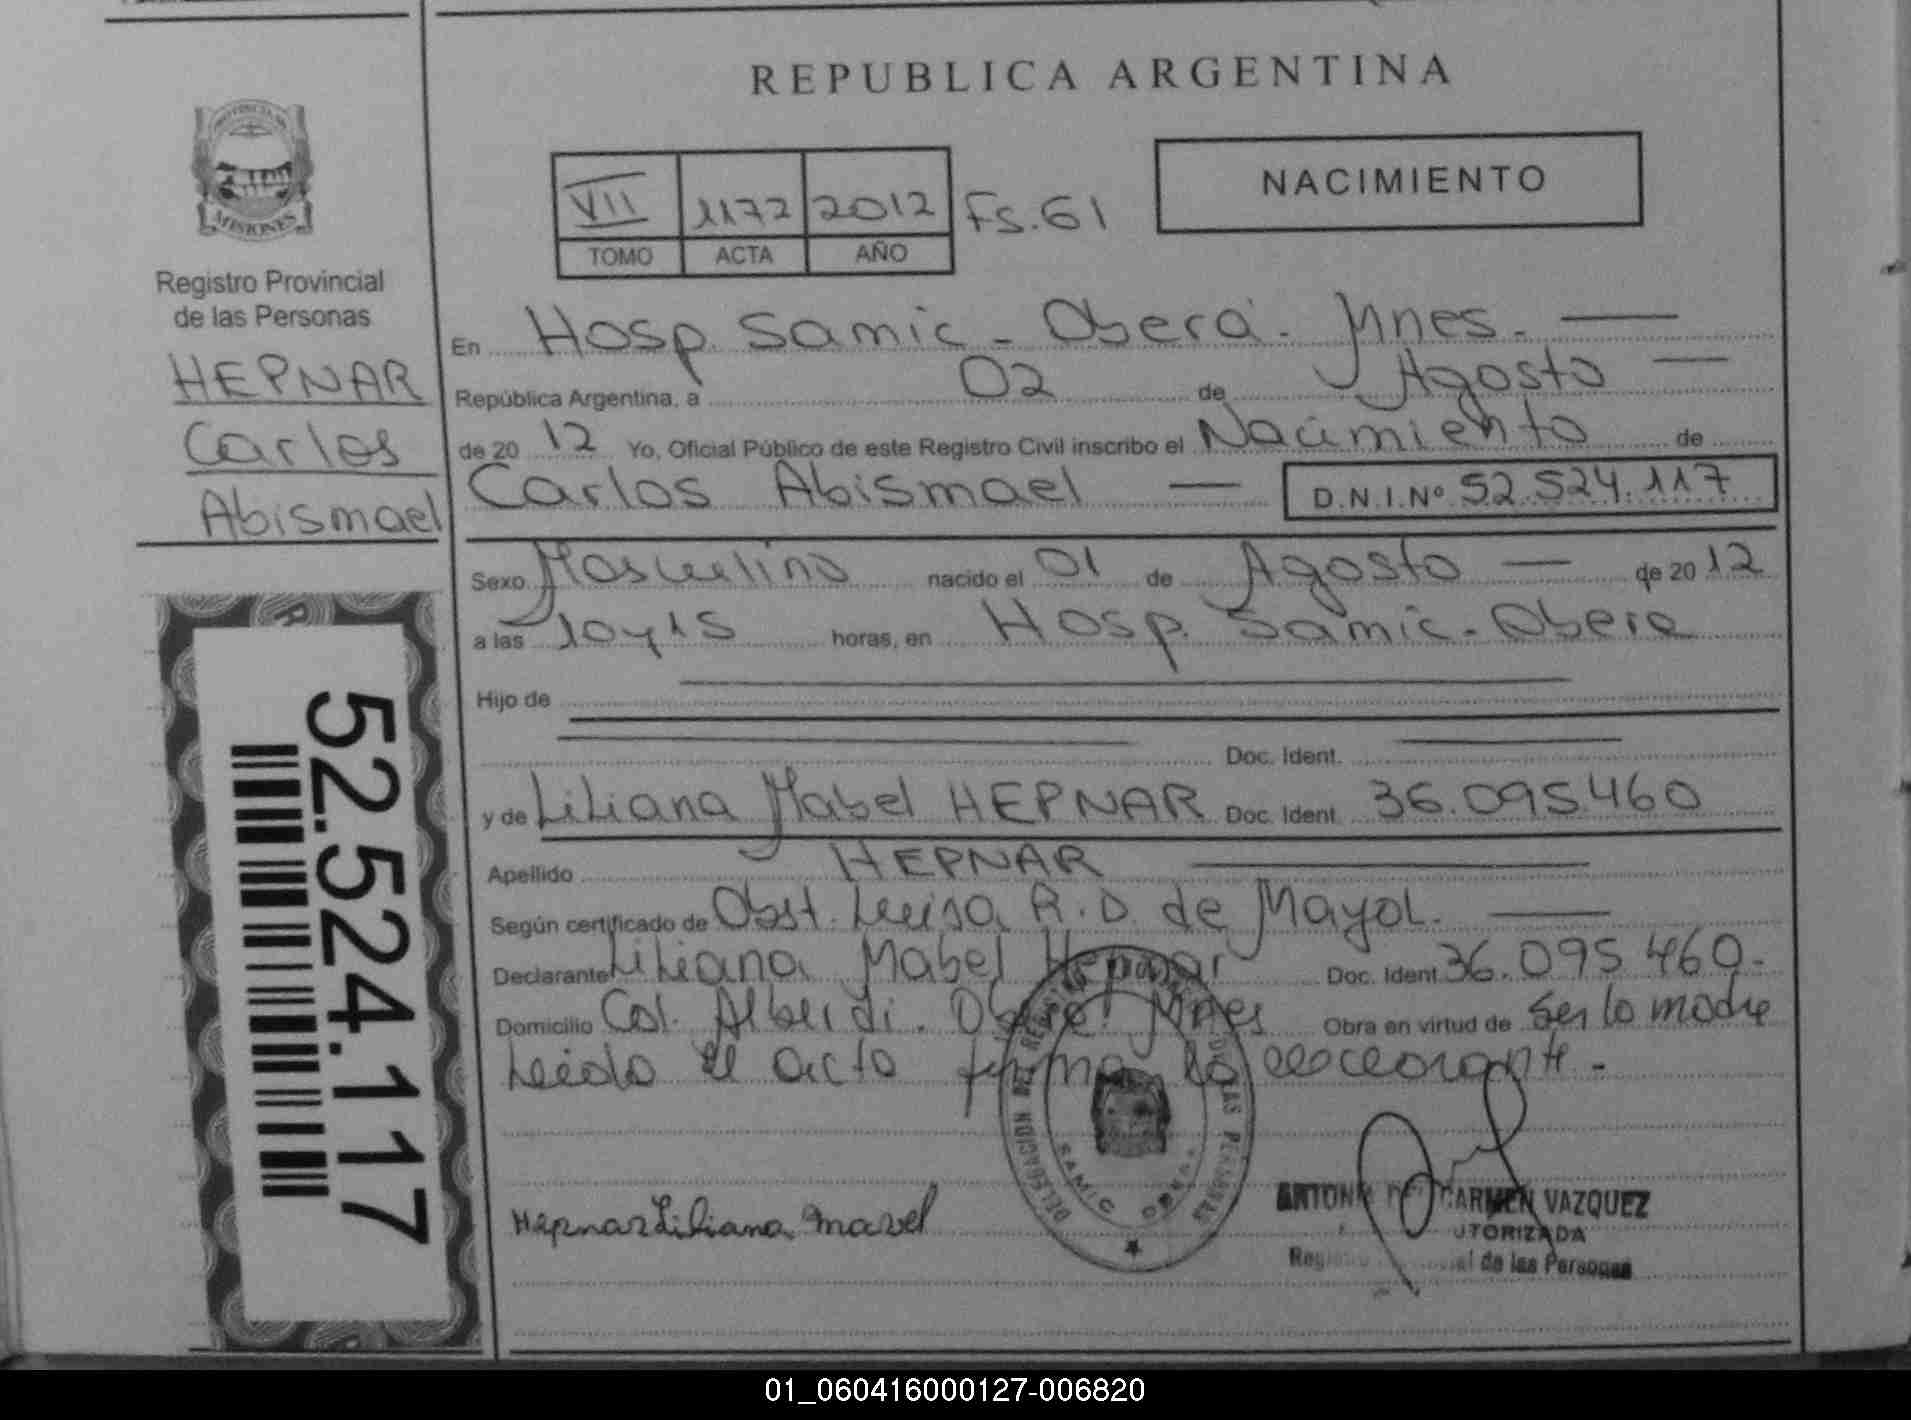 REPUBLICA ARGENTINA
NACIMIENTO
VII 1172 2012 Fs. 61
TOMO ACTA AÑO
PROVINCIA DE
MISIONES
Registro Provincial
de las Personas
HEPNAR
Carlos
Abismael
52.524.117
En Hosp. Samic - Oberá - Mnes. -
República Argentina, a 02 de Agosto
de 20 12 Yo, Oficial Público de este Registro Civil inscribo el Nacimiento de
Carlos Abismael — D.N.I.Nº 52.524.117
Sexo Masculino nacido el 01 de Agosto — de 20 12
a las 10 y 15 horas, en Hosp. Samic - Obera
Hijo de
Doc. Ident.
y de Liliana Mabel HEPNAR Doc. Ident. 36.095.460
Apellido HEPNAR
Según certificado de Obst. Luisa R. D. de Mayol. —
Declarante Liliana Mabel Hepnar Doc. Ident. 36.095.460.-
Domicilio Col. Alberdi. Oberá Mnes Obra en virtud de Ser la madre
Leida el acta firma la declarante.-
DELEGACION DEL REGISTRO PROVINCIAL DE LAS PERSONAS
SAMIC OBERA
Hepnar Liliana mavel
ANTONIA DEL CARMEN VAZQUEZ
AUTORIZADA
Registro Provincial de las Personas
01_060416000127-006820